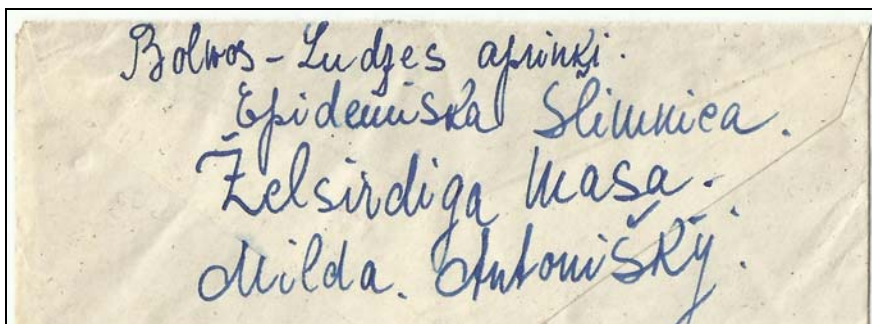 Bolwos - Ludzes aprinķi.
Epidemiska Slimnica.
Želsirdiga Masa.
Milda. Antoniškÿ.